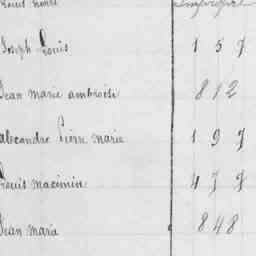 Joseph Louis 1 5 7
Jean marie ambroise 8 1 2
alexandre Pierre marie 1 9 7
Louis maximin 4 7 9
Jean maria 8 4 8